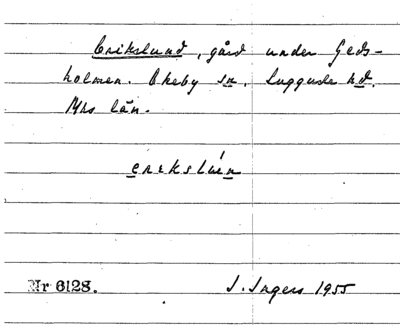 Erikslund, gård under Geds-
holmen. Ekeby sn. Luggude hd.
Mhs län.
erikslún
Nr 6128. I. Ingers 1955